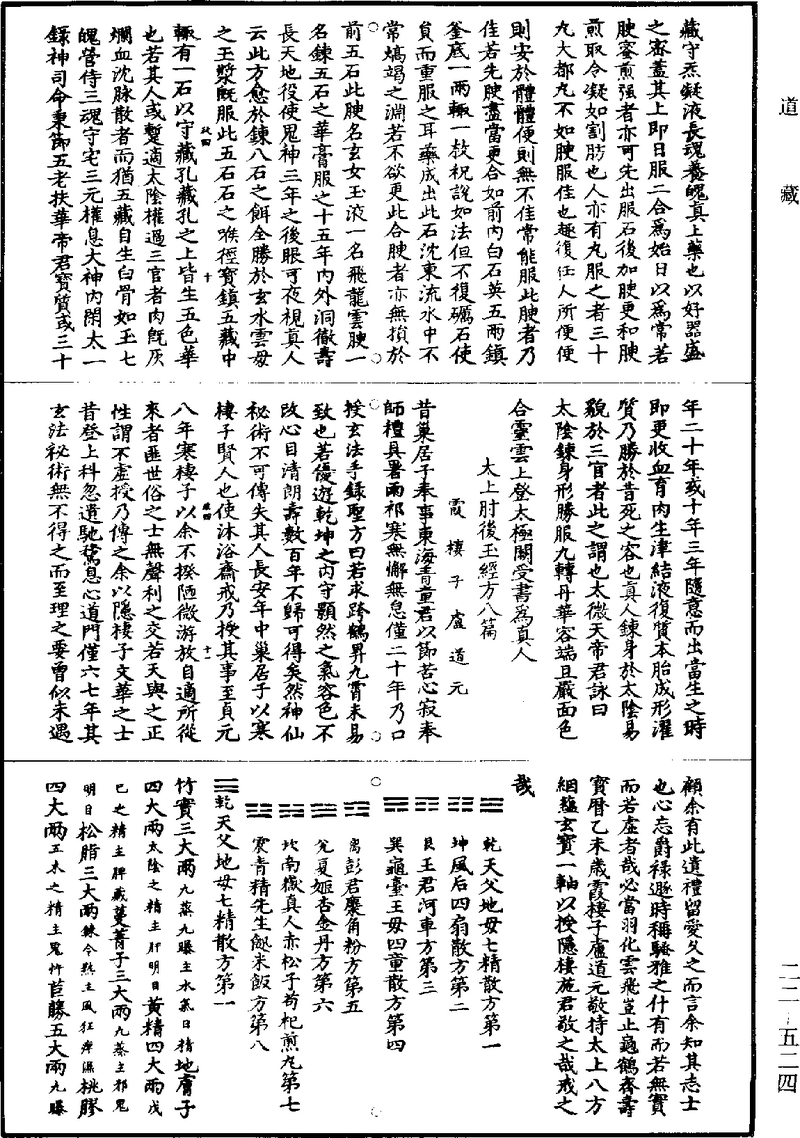 道藏
藏守炁凝液長魂養魄真上藥也以好器盛
之密蓋其上即日服二合為始日以為常若
腴蜜煎强者亦可先出服石後加腴更和腴
煎取令凝如割肪也人亦有丸服之者三十
九大都丸不如腴服佳也趣復任人所便使
則安於體體便則無不佳常能服此腴者乃
佳若先腴盡當更合如前內白石英五兩鎮
釜底一兩輒一枚祝說如法但不復礪石使
負而重服之耳藥成出此石沈東流水中不
常熇竭之淵若不欲更此合腴者亦無損於
前五石此腴名玄女玉液一名飛龍雲腴一
名鍊五石之華膏服之十五年內外洞徹壽
長天地役使鬼神三年之後眼可夜視真人
云此方愈於鍊八石之餌全勝於玄水雲母
之玉漿既服此五石石之喉徑寶鎮五藏中
輒有一石以守藏孔藏孔之上皆生五色華
也若其人或蹔適太陰權過三官者肉既灰
爛血沈脉散者而猶五藏自生白骨如玉七
魄營侍三魂守宅三元權息大神內閉太一
錄神司命秉節五老扶華帝君寶質或三十
年二十年或十年三年隨意而出當生之時
即更收血育肉生津結液復質本胎成形濯
質乃勝於昔死之容也真人鍊身於太陰易
貌於三官者此之謂也太微天帝君詠曰
太陰鍊身形勝服九轉丹華容端且嚴面色
合靈雲上登太極闕受書為真人
太上肘後玉經方八篇
霞棲子盧道元
昔巢居子奉事東海青童君以節苦心寂奉
師禮具暑雨祁寒無懈無怠僅二十年乃口
授玄法手錄聖方曰若求跨鶴昇九霄未易
致也若優遊乾坤之內守顥然之氣容色不
改心目清朗壽數百年不歸可得矣然神仙
秘術不可傳失其人長安年中巢居子以寒
棲子賢人也使沐浴齋戒乃授其事至貞元
八年寒棲子以余不揆陋微游放自適所從
來者匪世俗之士無聲利之交若天與之正
性謂不虛授乃傳之余以隱棲子文華之士
昔登上科忽遺馳騖息心道門僅六七年其
玄法祕術無不得之而至理之要曾似未遇
顧余有此遺禮留愛久之而言余知其志士
也心忘爵祿遯時稱騷雅之什有而若無實
而若虛者哉必當羽化雲飛豈止龜鶴齊壽
寶曆乙未歲霞棲子盧道元敬持太上八方
絪緼玄寶一軸以授隱棲施君敬之哉戒之
哉
☰乾天父地母七精散方第一
☷坤風后四扇散方第二
☶艮王君河車方第三
☴巽龜臺王母四童散方第四
☲离彭君麋角粉方第五
☱兌夏姬杏金丹方第六
☵坎南嶽真人赤松子苟杞煎丸第七
☳震青精先生䭀米飯方第八
☰乾天父地母七精散方第一
竹實三大兩九蒸九曝主水氣日精地膚子
四大兩太陰之精主肝明目黃精四大兩戊
己之精主脾藏蔓菁子三大兩九蒸主邪鬼
明目松脂三大兩鍊令熟主風狂痺濕桃膠
四大兩五木之精主鬼忤苣藤五大兩九曝
二二—五二四